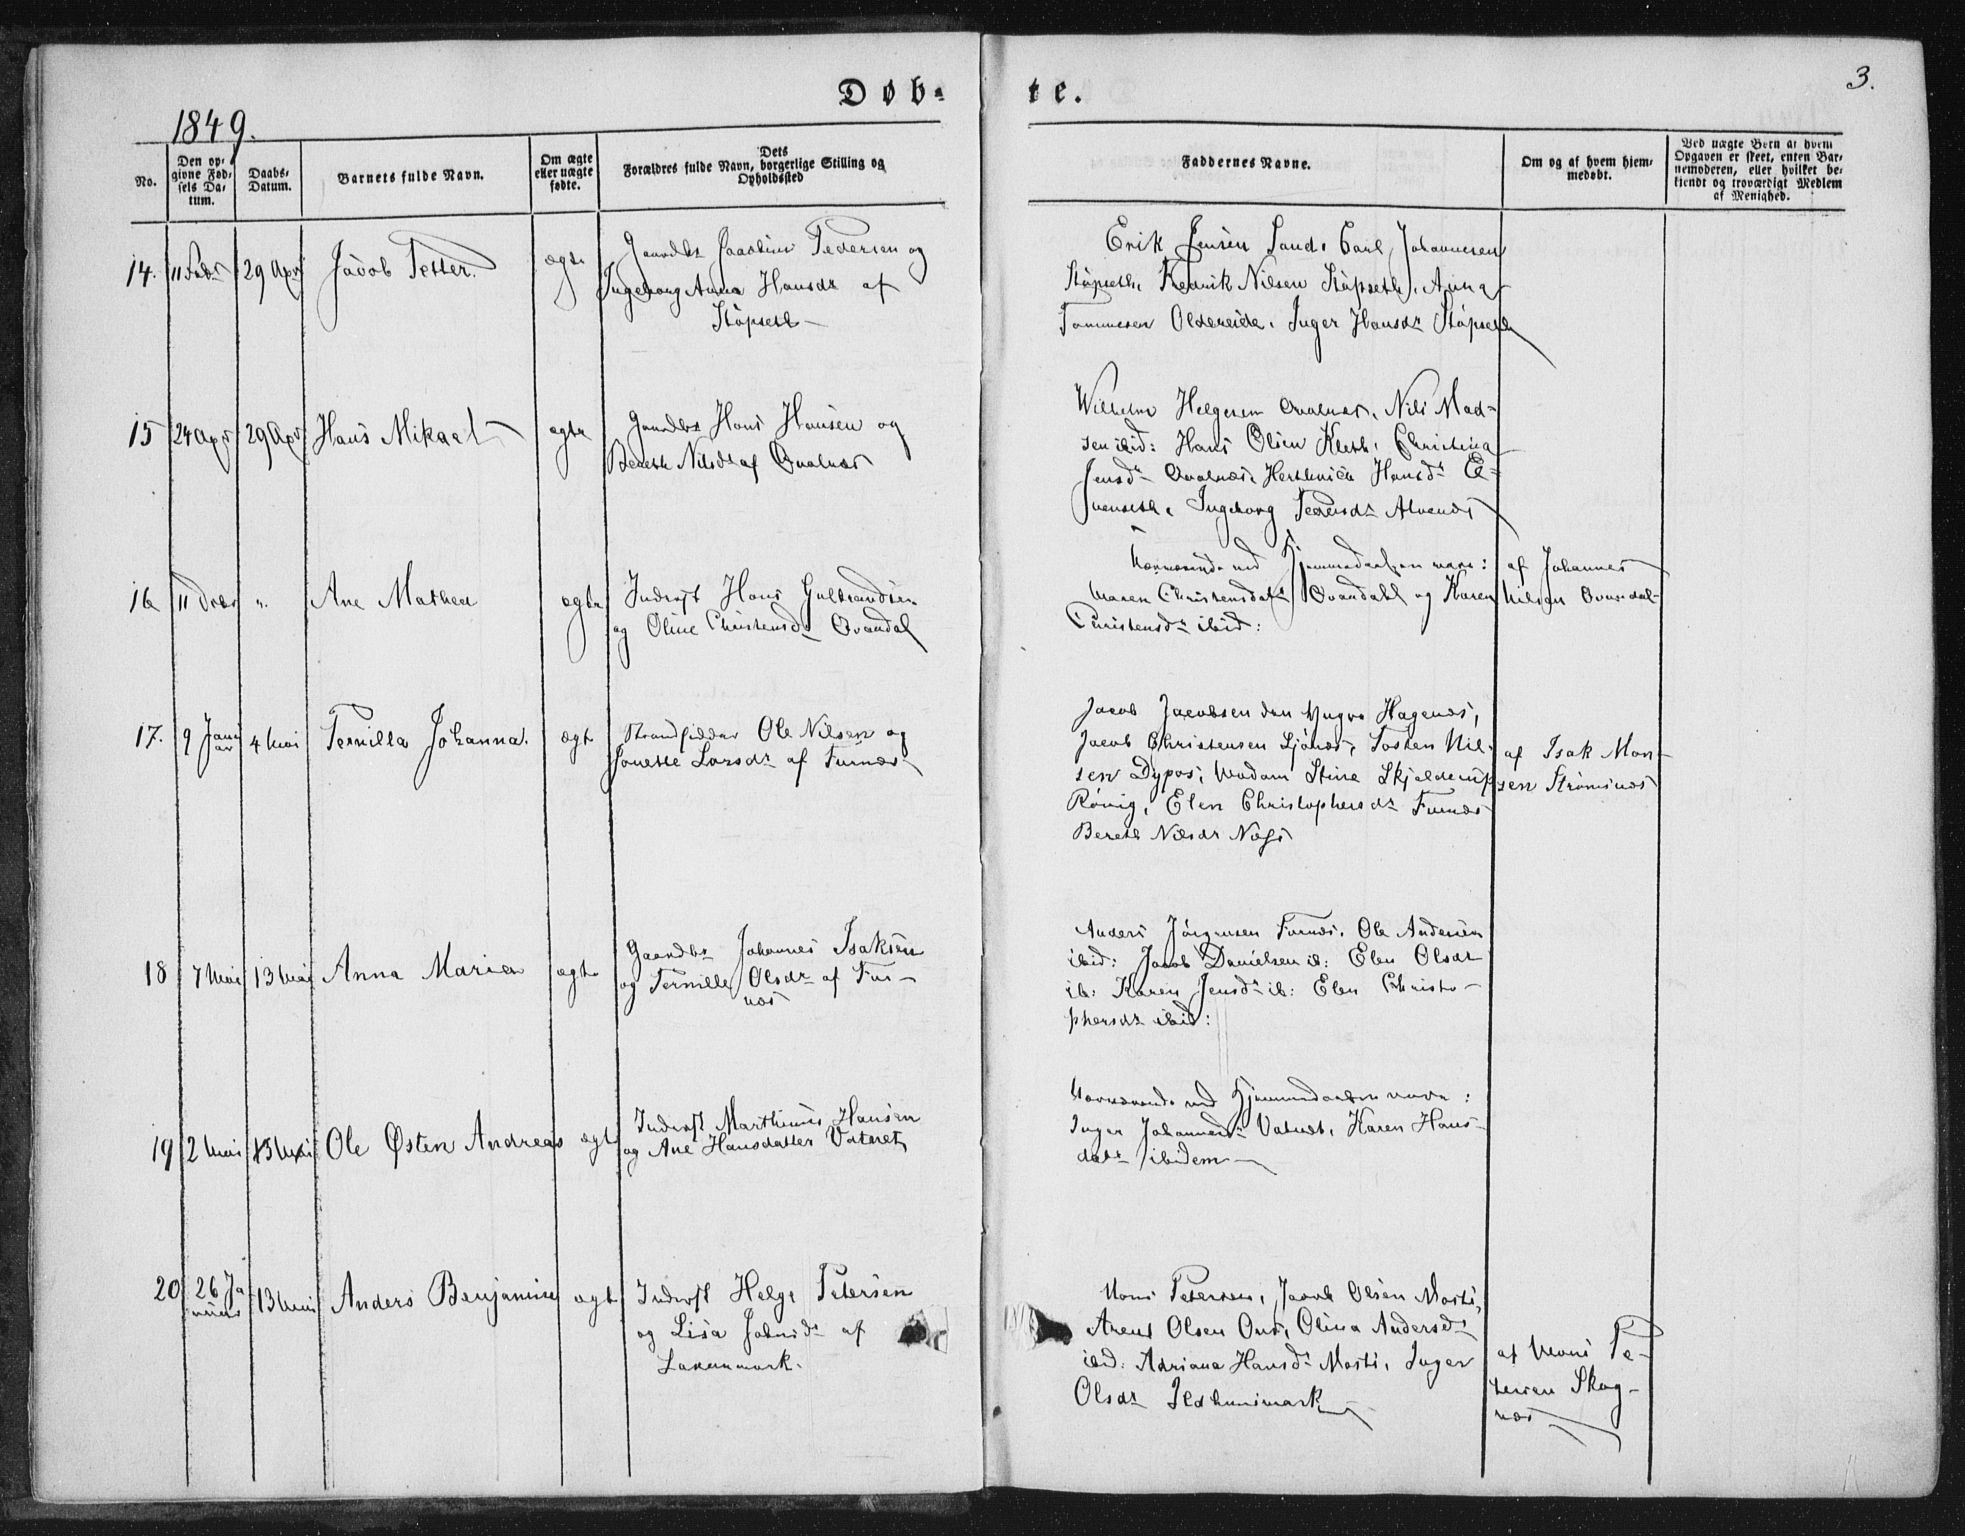 Døb-
te.
3.
1849.
No.
Den op-
givne Fød-
sels Da-
tum.
Daabs-
Datum.
Barnets fulde Navn.
Om ægte
eller uægte
fødte.
Dets
Forældres fulde Navn, borgerlige Stilling og
Opholdssted
Faddernes Navne.
Om og af hvem hjem-
medøbt.
Ved uægte Børn at hvem
Opgaven er skeet, enten Bar-
nemoderen, eller hvilket be-
kjendt og troværdigt Medlem
af Menighed.
14.
11 Febr
29 Apr
Jacob Petter.
ægte
Gaardbr Joachim Pedersen og
Ingeborg Anna Hansdr af
Støpseth
Erik Jensen Sand, Carl Johannesen
Støpseth, Fredrik Nilsen Støpseth, Anna
Oldereide, Inger Hansdr Støpseth
15
24 Apr
29 Apr
Hans Mikael
ægte
Gaardbr Hans Hansen og
Bereth Nilsdr af Qvalnæs
Wilhelm Helgesen Qvalnæs, Nils Mad-
sen ibid: Hans Olsen Kleth, Christina
Jensdr Qvalnæs, Hansdr El-
venseth, Ingeborg Pedersdr Alvenæs
16
11
"
Ane Mathea
ægte
Inderst Hans Guldbrandsen
og Oline Christensdr Qvandal
Nærværende ved Hjemmedaaben vare:
Maren Christensdatr Qvandahl og Karen
Christensdr ibid:
af Johannes
Nilsen Qvandal
17.
9 Janu
ar
4 Mai
Pernilla Johanna.
ægte
Strandsidder Ole Nilsen og
Jonette Larsdr af Furnæs
Jacob Jacobsen den Yngre Hagenæs,
Jacob Christensen Ljønæs, Tosten Nil-
sen Dypos, Madam Stine Skjelderup
Rønig, Elen Christophersdr Furnæs
Bereth Nilsdr
af Isak Mon-
sen Strømsnæs
18
7 Mai
13 Mai
Anna Maria
ægte
Gaardbr Johannes Isaksen
og Pernille Olsdr af Fur-
næs
Anders Jørgensen Furnæs, Ole Andersen
ibid: Jacob Danielsen ib: Elen Olsdr
ib: Karen Jensdr ib: Elen Christo-
phersdr ibid:
19
2 Mai
13 Mai
Ole Østen Andreas
ægte
Inderst Marthinus Hansen
og Ane Hansdatter Vatnet
Nærværende ved Hjemmedaaben vare:
Inger Johannesdr Vatnet, Karen Hans-
datr ibidem
20
26 Ja
nuar
13 Mai
Anders Benjamin
ægte
Inderst Helge Petersen
og Lisa Johnsdr af
Laxenmark.
Mons Petersen, Jacob Olsen Mosti,
Arent Olsen Ons, Olina Andersdr
ibid: Adriana Hansdr Mosti, Inger
Olsdr
af Mons Pe-
tersen Skog-
næs